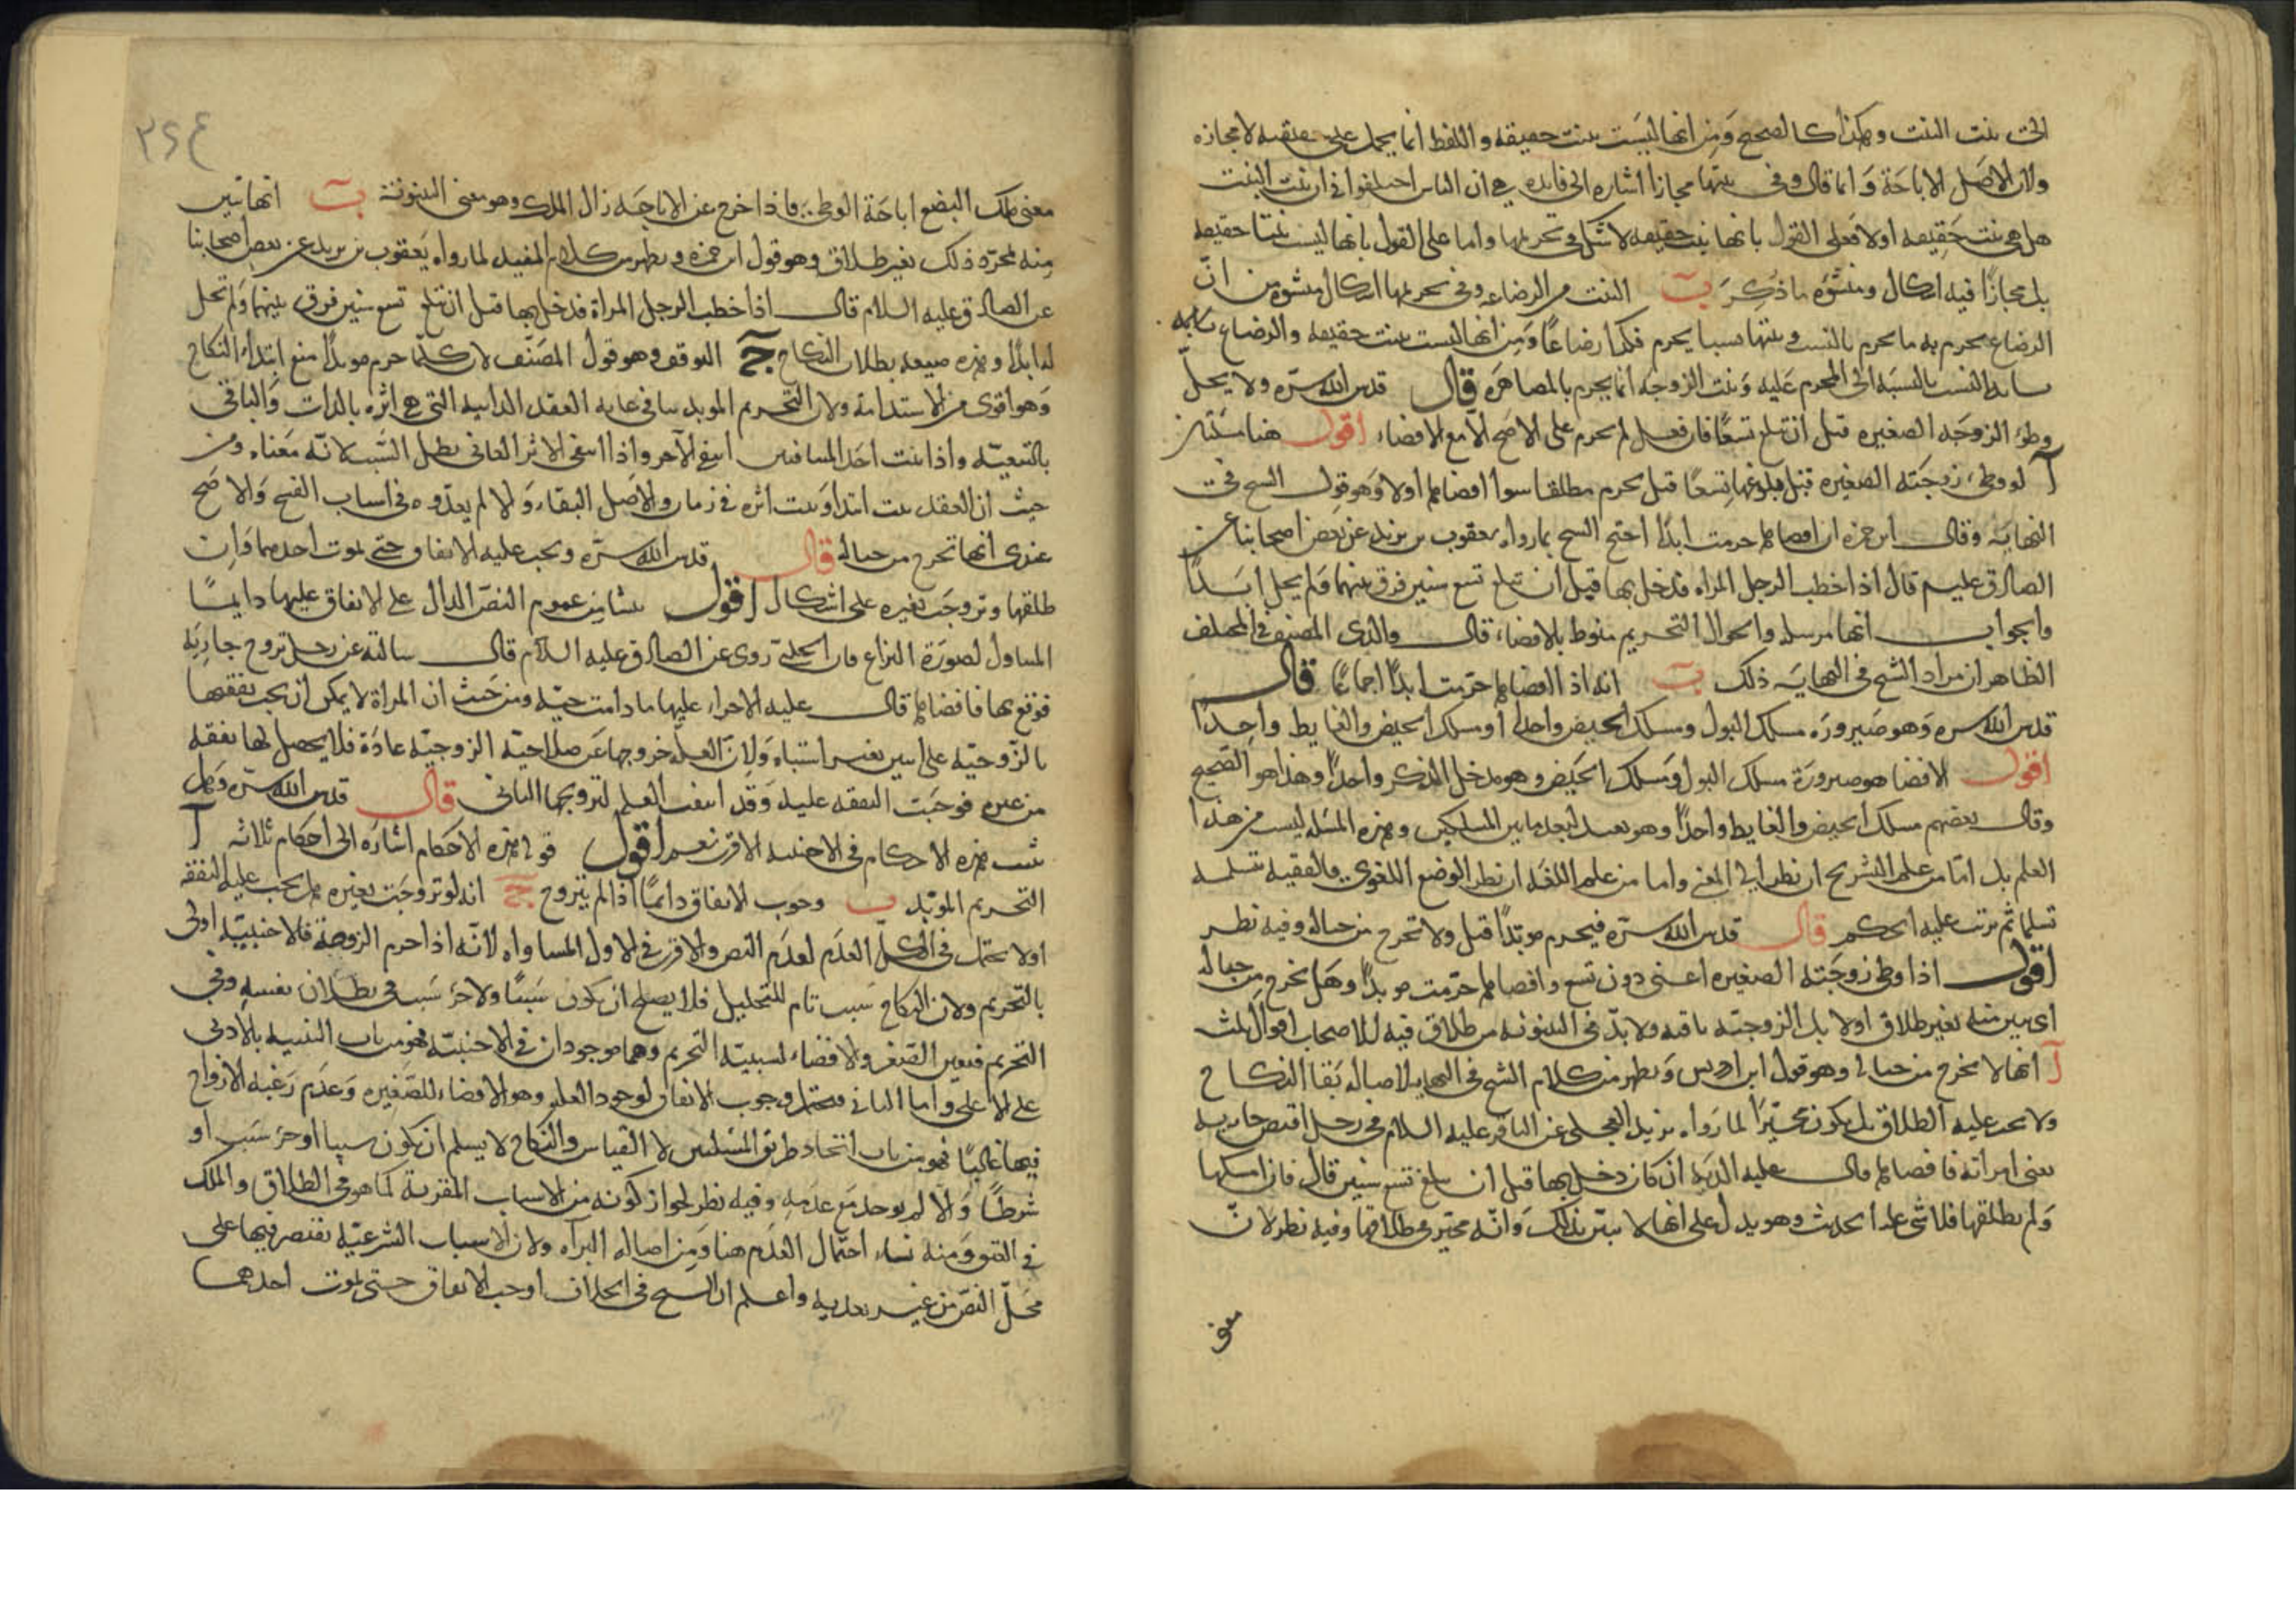 بنت البنت وهكذا كالصحيح ومن انها ليست بنت حقيقة واللفظ انما يحمل على حقيقته لا مجازه
ولان الاصل الاباحة وانما قال وفي بنتها مجازا اشارة الى فايدة هي ان الناس اختلفوا في ان بنت البنت
هل هي بنت حقيقة اولا فعلى القول بانها بنت حقيقة لا شك في تحريمها واما على القول بانها ليست بنتا حقيقة
بل مجازا فيه اشكال ومنشؤه ما ذكر ب البنت من الرضاعة وفي تحريمها اشكال منشؤه من ان
الرضاع يحرم به ما يحرم بالنسب وبنتها نسبا يحرم فكذا رضاعا ومن انها ليست بنت حقيقة والرضاع
النسب بالنسبة الى المحرم عليه وبنت الزوجة انما يحرم بالمصاهرة قال قدس الله سره ولا يحل
وطؤ الزوجة الصغيرة قبل ان تبلغ تسعا فان فعل لم يحرم على الاصح الا مع الافضاء اقول هنا مسئلتان
آ لو وطئ زوجته الصغيرة قبل بلوغها تسعا قيل يحرم مطلقا سوا افضاها اولا وهو قول الشيخ في
النهاية وقال ابن حمزة ان افضاها حرمت ابدا احتج الشيخ بما رواه يعقوب بن يزيد عن بعض اصحابنا عن
الصادق عليم قال اذا خطب الرجل المراة فدخل بها قبل ان تبلغ تسع سنين فرق بينهما ولم يحل ابدا
والجواب انها مرسلة والتحريم منوط بالافضاء قال والدي المصنف في المختلف
الظاهر ان مراد الشيخ في النهاية ذلك ب انه اذا افضاها حرمت ابدا اجماعا قال
قدس الله سره وهو صيرورة مسلك البول ومسلك الحيض واحدا او مسلك الحيض والغايط واحدا
اقول الافضا هو صيرورة مسلك البول ومسلك الحيض وهو مدخل الذكر واحدا وهذا هو الصحيح
وقال بعضهم مسلك الحيض والغايط واحدا وهو بعيد لبعد ما بين المسلكين وهذه المسئلة ليست من هذا
العلم بل اما من علم التشريح ان نظر الى المعنى واما من علم اللغة ان نظر الوضع اللغوي فالفقيه يتسلمه
تسلما ثم يرتب عليه الحكم قال قدس الله سره فيحرم مؤبدا قيل ولا تخرج من حباله وفيه نظر
اقول اذا وطئ زوجته الصغيرة اعني دون تسع وافضاها حرمت مؤبدا وهل تخرج من حباله
اي تبين منه بغير طلاق اولا بل الزوجية باقية ولا بد في البينونة من طلاق فيه للاصحاب اقوال ثلث
آ انها لا تخرج من حباله وهو قول ابن ادريس ويظهر من كلام الشيخ في النهاية لاصالة بقا النكاح
ولا يجب عليه الطلاق بل يكون مخيرا لما رواه بريد العجلي عن الباقر عليه السلام في رجل اقتض جارية
يعني امراته فافضاها قال عليه الدية ان كان دخل بها قبل ان تبلغ تسع سنين قال فان امسكها
ولم يطلقها فلا شئ عليه الحديث وهو يدل على انها لا تبين بذلك وانه مخير في طلاقها وفيه نظر لان
معنى
٣٤٤
معنى ملك البضع اباحة الوطئ فاذا خرج عن الاباحة زال الملك وهو معنى البينونة ب انها تبين
منه بمجرد ذلك بغير طلاق وهو قول ابن حمزة ويظهر من كلام المفيد لما رواه يعقوب بن يزيد عن بعض اصحابنا
عن الصادق عليه السلام قال اذا خطب الرجل المراة فدخل بها قبل ان تبلغ تسع سنين فرق بينهما ولم تحل
له ابدا وهذه صيغة بطلان النكاح ج التوقف وهو قول المصنف لان كلما حرم مؤبدا منع ابتداء النكاح
وهو اقوى من الاستدامة ولان التحريم المؤبد ينافي غاية العقد الذاتية التي هي اثره بالذات والباقي
بالتبعية واذا ثبت احد المتنافيين انتفى الآخر واذا انتفى الاثر الغائي بطل السبب لانه معناه ومن
حيث ان العقد ثبت ابتدا وثبت اثره في زمان والاصل البقاء ولا لم يعدوه في اسباب الفسخ والاصح
عندي انها تخرج من حباله قال قدس الله سره ويجب عليه الانفاق حتى يموت احدهما فان
طلقها وتزوجت بغيره على اشكال اقول ينشا من عموم النص الدال على الانفاق عليها دايما
المتناول لصورة النزاع فان الحلبي روى عن الصادق عليه السلام قال سالته عن رجل تزوج جارية
فوقع بها فافضاها قال عليه الاجراء عليها ما دامت حية ومن حيث ان المراة لا يمكن ان يجب نفقتها
بالزوجية على اثنين بغير اشتباه ولان العلة خروجها عن صلاحية الزوجية عادة فلا يحصل لها نفقة
من غيره فوجبت النفقة عليه وقد انتفت العلة لتزويجها الثاني قال قدس الله سره وهل
تثبت هذه الاحكام في الاجنبية الاقرب نعم اقول قوله هذه الاحكام اشارة الى احكام ثلاثة آ
التحريم المؤبد ب وجوب الانفاق دائما اذا لم يتزوج ج انه لو تزوجت بغيره هل يجب عليه النفقة
اولا يحتمل في الكل العدم لعدم النص والاقرب في الاول المساواة لانه اذا حرم الزوجة فالاجنبية اولى
بالتحريم ولان النكاح سبب تام للتحليل فلا يصلح ان يكون سببا ولا جزء سبب في بطلان نفسه وفي
التحريم فتعين الصغر والافضاء لسببية التحريم وهما موجودان في الاجنبية فهو من باب التنبيه بالادنى
على الاعلى واما الثاني فيحتمل وجوب الانفاق لوجود العلة وهو الافضاء للصغيرة وعدم رغبة الازواج
فيها غالبا فهو من باب اتحاد طريق المسئلتين لا القياس والنكاح لا يسلم ان يكون سببا او جزء سبب او
شرطا والا لم يوجد مع عدمه وفيه نظر لجواز كونه من الاسباب المقربة كما هو في الطلاق والملك
في العتق ومنه نشاء احتمال العدم هنا ومن اصالة البرآة ولان الاسباب الشرعية يقتصر فيها على
محل النص من غير تعدية واعلم ان الشيخ في الخلاف اوجب الانفاق حتى يموت احدهما